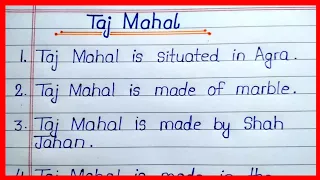 Taj Mahal
1. Taj Mahal is situated in Agra.
2. Taj Mahal is made of marble.
3. Taj Mahal is made by Shah
Jahan.
4. Taj Mahal is made in the